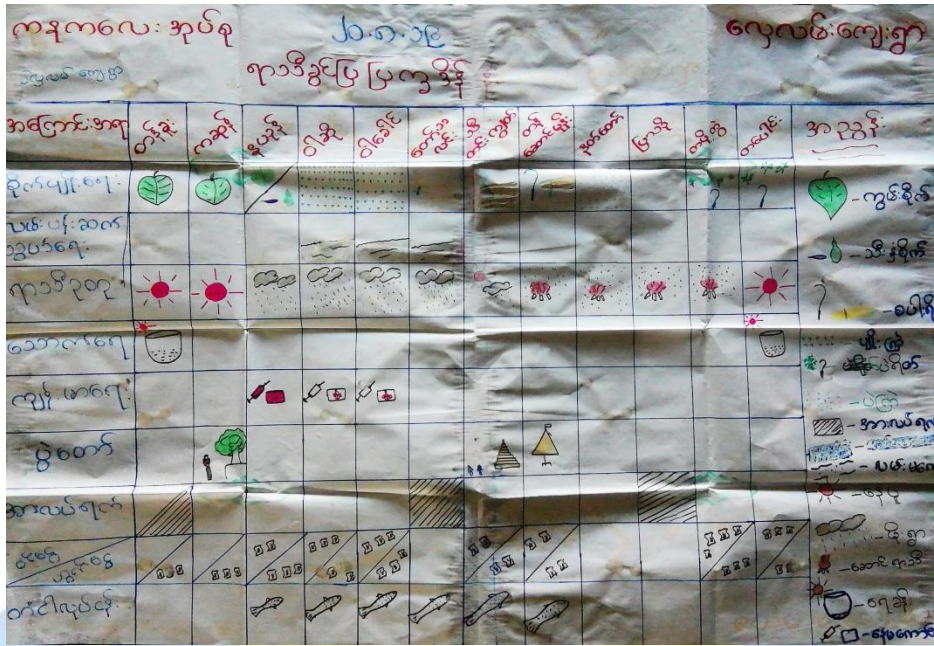 ကနကလေးအုပ်စု ၂၀.၈.၁၉ လှေလမ်းကျေးရွာ
ရာသီခွင်ပြပြက္ခဒိန်
အကြောင်းအရာ တန်ခူး ကဆုန် နယုန် ဝါဆို ဝါခေါင် တော်သလင်း သီတင်းကျွတ် တန်ဆောင်မုန်း နတ်တော် ပြာသို တပို့တွဲ တပေါင်း အညွှန်း
စိုက်ပျိုးရေး
- ကွမ်းစိုက်
လမ်းပန်းဆက်
- သီးနှံစိုက်
ရာသီဥတု
- စပါးရိတ်
သောက်ရေ
- မျိုးကြဲ
ကျန်းမာရေး
- ပဲကြဲ
ပွဲတော်
- အားလပ်ရက်
အားလပ်ရက်
- နေပူ
ဝင်ငွေ
- မိုးရွာ
- ဆောင်းရာသီ
တံငါလုပ်ငန်း
- ရေခန်း
- နေမကောင်း